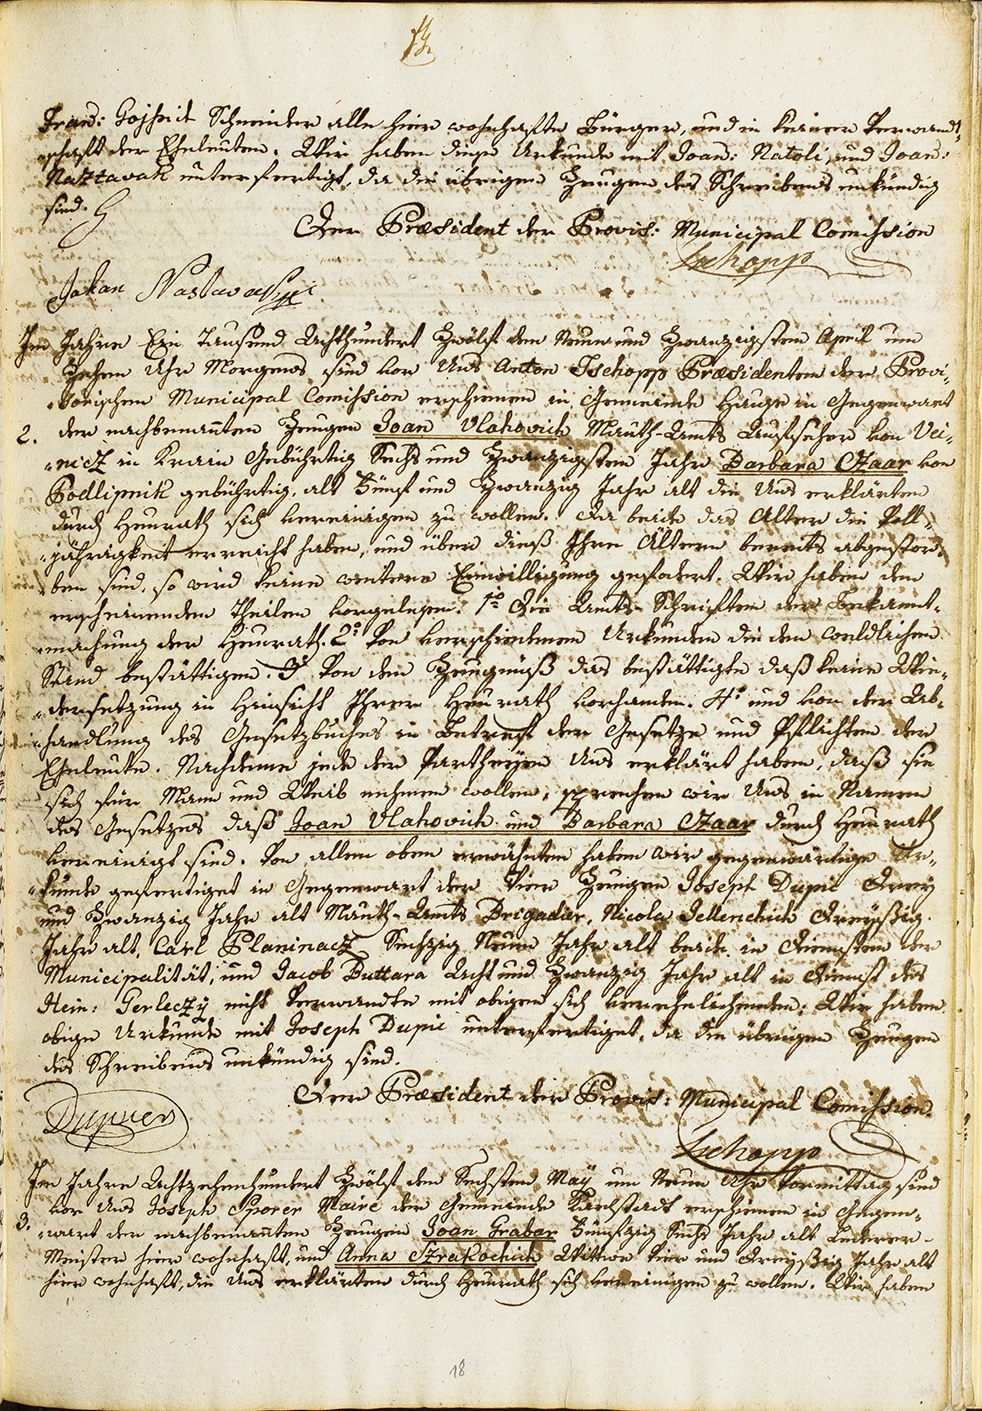 Fran: Gojshit Schneider alle hier wohnhafte Bürger, und in keiner Verwandt-
schaft der Eheleuten. Wir haben diese Urkunde mit Joan: Natoli, und Joan:
Nastavak unterfertigt, da die übrigen Zeugen des Schreibens unkündig
sind.
Der Præsident der Provis: Municipal Comission
Tschopp
Jokan Nastavak
Im Jahre Ein Tausend Achthundert Zwölf den Neun und Zwanzigsten April um
Zehen Uhr Morgens sind vor Uns Anton Tschopp Præsidenten der Provi-
sorischen Municipal Comission erschienen in Gemeinde Hause in Gegenwart
2. der nachbenannten Zeugen Joan Vlahovich Mauth-Amts Aufseher von Vei-
nicz in Krain Gebührtig Sechs und Zwanzigsten Jahr Barbara Czaar von
Podlipnik gebührtig, alt Fünf und Zwanzig Jahr alt die Uns erklärten
durch Heurath sich vereinigen zu wollen. Da beide das Alter die Voll-
jährigkeit erreicht haben, und über dieß Ihre Ältern bereits abgestor-
ben sind, so wird keine weitere Einwilligung gefodert. Wir haben den
erscheinenden Theilen vorgelesen. 1º Die Amts-Schriften der Bekannt-
machung der Heurath. 2º Von verschiedenen Urkunden die den weldlichen
Stand bestättigen. 3º Von dem Zeugnuß das bestättigte daß keine Wie-
dersetzung in Hinsicht Ihrer Heurath vorhanden. 4º und von der Ab-
handlung des Gesetzbuches in Betreff der Gesetze und Pflichten der
Eheleute. Nachdeme jede der Partheyen Uns erklärt haben, daß sie
sich für Mann und Weib nehmen wollen, sprechen wir Uns in Namen
des Gesetzes daß Joan Vlahovich und Barbara Czaar durch Heurath
vereinigt sind. Von allen oben erwähnten haben wir gegenwärtige Ur-
kunde gefertiget in Gegenwart der Vier Zeugen Joseph Dupié Drey
und Zwanzig Jahr alt Mauth-Amts Brigadier, Nicola Jellenchich Dreyßig
Jahr alt, Carl Planinacz Sechzig Neun Jahr alt beide in Diensten der
Municipalität, und Jacob Buttara Acht und Zwanzig Jahr alt in Dienst des
Hein: Gerleczy nicht Verwandte mit obigen sich verehelichenden. Wir haben
obige Urkunde mit Joseph Dupié unterfertiget, da die übrigen Zeugen
des Schreibens unkündig sind.
Der Præsident der Provis: Municipal Comission.
Dupuer
Tschopp
Im Jahre Achtzehenhundert Zwölf den Sechsten May um Neun Uhr Vormittag sind
vor Uns Joseph Sporer Maire der Gemeinde Karlstadt erschienen in Gegen-
3. wart der nachbenannten Zeugen Joan Grabar Fünfzig Sechs Jahr alt Lederer-
Meister hier wohnhaft, und Anna Szrakochich Wittwe Vier und Dreyßig Jahr alt
hier wohnhaft, die Uns erklärten durch Heurath sich vereinigen zu wollen. Wir haben
18